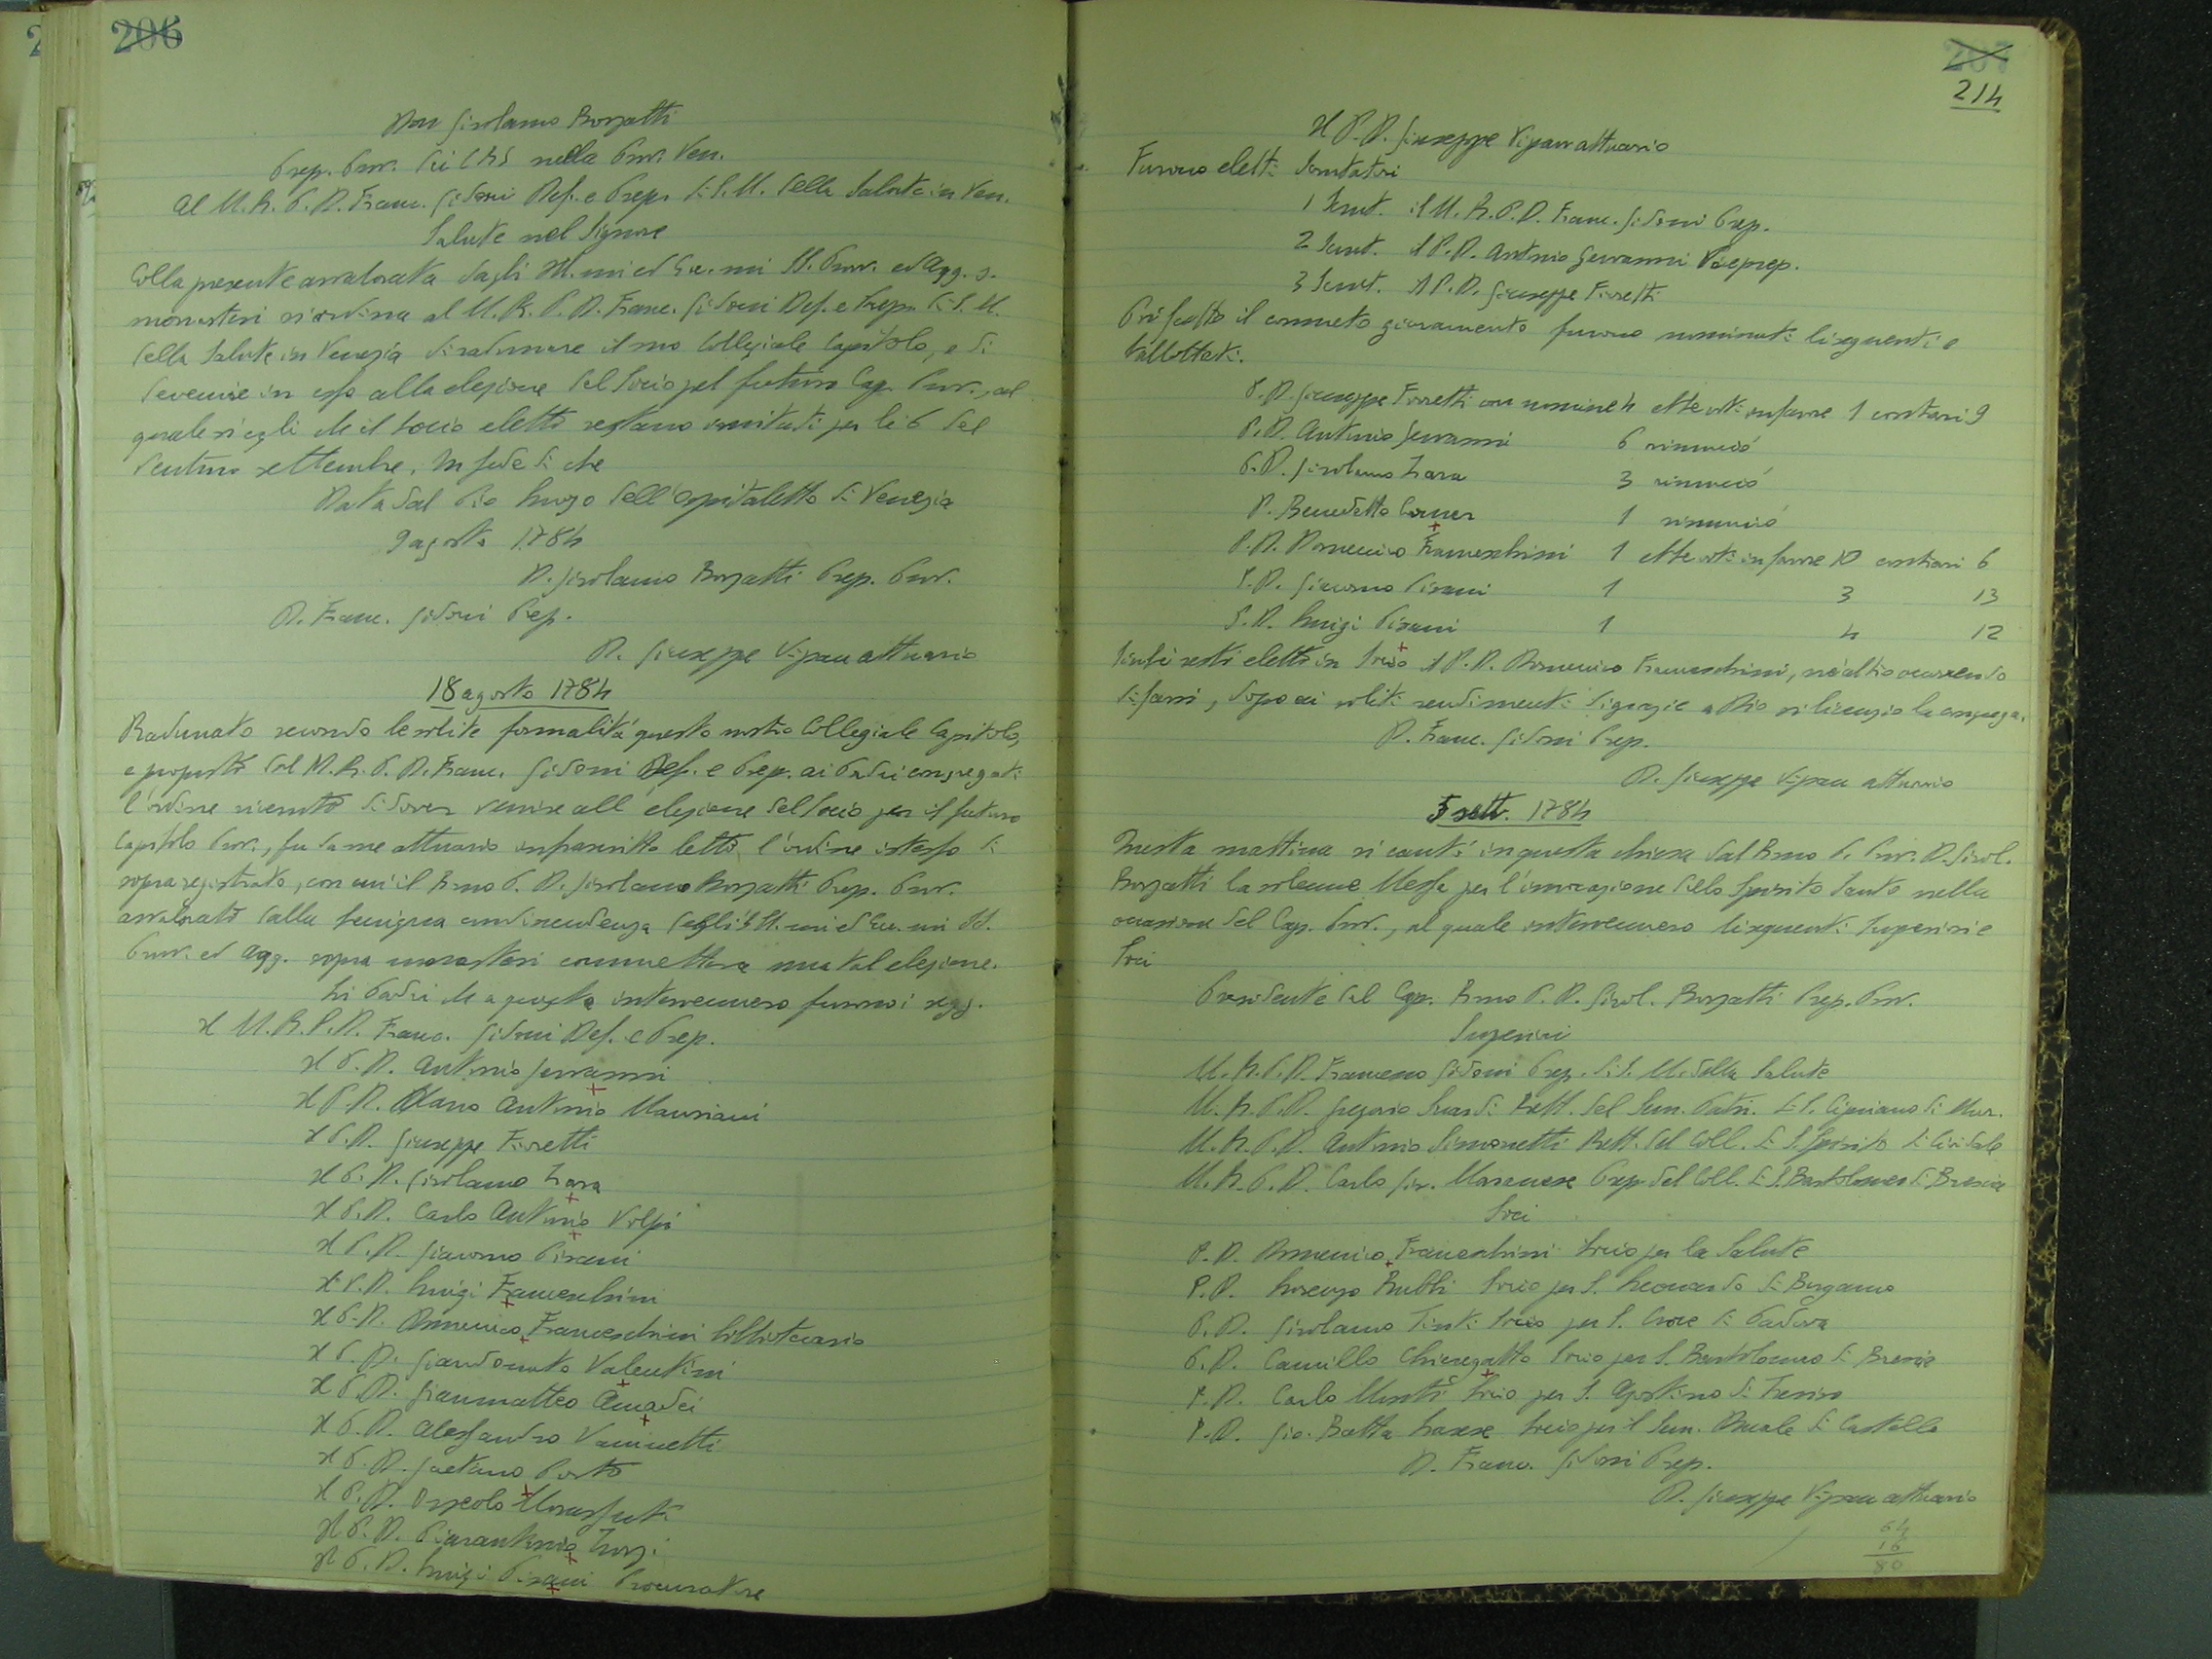 206
Don Girolamo Borzatti
Prep. Prov. di CRS nella Prov. Ven.
Al M. R. P. D. Franc. Gidoni Def. e Prep. di S. M. della Salute in Ven.
Salute nel Signore
Colla presente avvalorata dagli Ill.mi ed Ecc.mi SS. Prov. ed Agg. s.
monasteri si ordina al M. R. P. D. Franc. Gidoni Def. e Prep. di S. M.
della Salute in Venezia di radunare il suo Collegiale Capitolo, e di
devenire in esso alla elezione del Socio pel futuro Cap. Prov., al
quale sì egli che il socio eletto restano invitati per li 6 del
venturo settembre. In fede di che
Data dal Pio Luogo dell'Ospitaletto di Venezia
9 agosto 1784
D. Girolamo Borzatti Prep. Prov.
D. Franc. Gidoni Prep.
D. Giuseppe Vipau attuario
18 agosto 1784
Radunato secondo le solite formalità questo nostro Collegiale Capitolo,
e proposto dal M. R. P. D. Franc. Gidoni Def. e Prep. ai Padri congregati
l'ordine ricevuto di dover venire all'elezione del Socio per il futuro
Capitolo Prov., fu da me attuario infrascritto letto l'ordine istesso di
sopra registrato, con cui il Rmo P. D. Girolamo Borzatti Prep. Prov.
avvalorato dalla benigna condiscendenza degli Ill.mi ed Ecc.mi SS.
Prov. ed Agg. sopra monasteri commetteva una tal elezione.
Li Padri che a questa intervennero furono i segg.
Il M. R. P. D. Franc. Gidoni Def. e Prep.
Il P. D. Antonio Gervasoni
Il P. D. Mario Antonio Mauriani
Il P. D. Giuseppe Fioretti
Il P. D. Girolamo Zara
Il P. D. Carlo Antonio Volpi
Il P. D. Giacomo Pisani
Il P. D. Luigi Franceschini
Il P. D. Domenico Franceschini bibliotecario
Il P. D. Giandonato Valentini
Il P. D. Gianmatteo Amadei
Il P. D. Alessandro Vaninetti
Il P. D. Gaetano Porto
Il P. D.
Il P. D. Pierantonio Zorzi
Il P. D. Luigi Pisani Procuratore
207
214
Il P. D. Giuseppe Vipau attuario
Furono eletti Scrutatori
1 Scrut. il M. R. P. D. Franc. Gidoni Prep.
2 Scrut. il P. D. Antonio Gervasoni Viceprep.
3 Scrut. il P. D. Giuseppe Fioretti
Prestato il consueto giuramento furono nominati li seguenti e
ballottati.
P. D. Giuseppe Fioretti con nomine 4 ebbe voti in favore 1 contrari 9
P. D. Antonio Gervasoni 6 rinunciò
P. D. Girolamo Zara 3 rinunciò
P. Benedetto Corner 1 rinunciò
P. D. Domenico Franceschini 1 ebbe voti in favore 10 contrari 6
P. D. Giacomo Pisani 1 3 13
P. D. Luigi Pisani 1 4 12
Quindi restò eletto in Socio il P. D. Domenico Franceschini, né altro occorrendo
di farsi, dopo ai soliti rendimenti di grazie a Dio si licenziò la congrega.
D. Franc. Gidoni Prep.
D. Giuseppe Vipau attuario
5 sett. 1784
Questa mattina si cantò in questa chiesa dal Rmo P. Prov. D. Girol.
Borzatti la solenne Messa per l'invocazione dello Spirito Santo nella
occasione del Cap. Prov., al quale intervennero li seguenti Superiori e
Soci
Presidente del Cap. Rmo P. D. Girol. Borzatti Prep. Prov.
Superiori
M. R. P. D. Francesco Gidoni Prep. di S. M. della Salute
M. R. P. D. Gregorio Suardi Rett. del Sem. Patr. di S. Cipriano di Mur.
M. R. P. D. Antonio Simonetti Rett. del Coll. di S. Spirito di Cividale
M. R. P. D. Carlo Gir. Maranese Prep. del Coll. di S. Bartolomeo di Brescia
Soci
P. D. Domenico Franceschini Socio per la Salute
P. D. Lorenzo Rubbi Socio per S. Leonardo di Bergamo
P. D. Girolamo Tinti Socio per S. Croce di Padova
P. D. Camillo Chieregatto Socio per S. Bartolomeo di Brescia
P. D. Carlo Monti Socio per S. Agostino di Treviso
P. D. Gio. Batta Socio pel Sem. Ducale di Castello
D. Franc. Gidoni Prep.
D. Giuseppe Vipau attuario
64
16
80